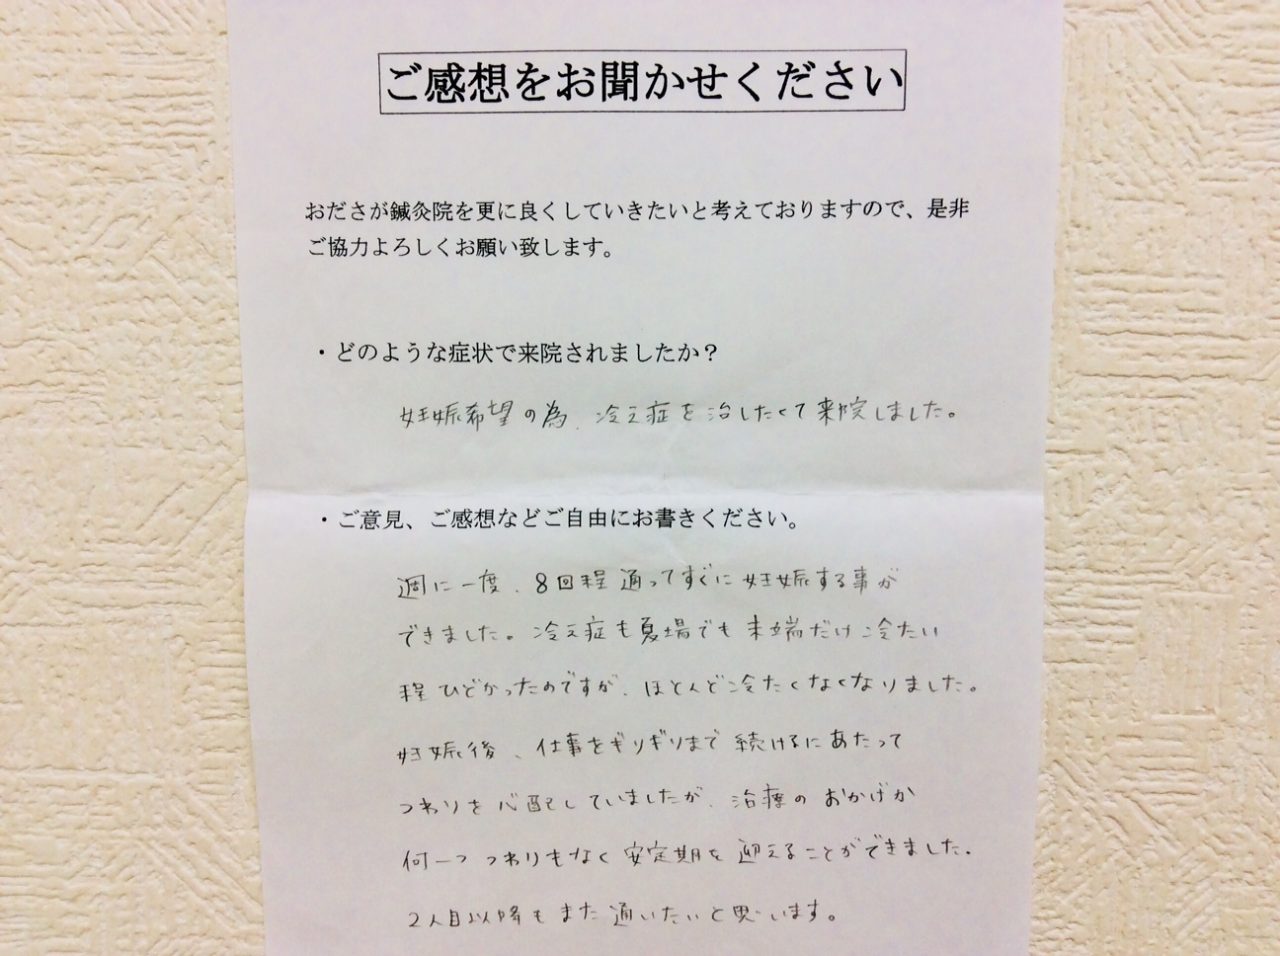 ご感想をお聞かせください
おださが鍼灸院を更に良くしていきたいと考えておりますので、是非
ご協力よろしくお願い致します。
・どのような症状で来院されましたか？
妊娠希望の為、冷え症を治したくて来院しました。
・ご意見、ご感想などご自由にお書きください。
週に一度、8回程通ってすぐに妊娠する事が
できました。冷え症も夏場でも末端だけ冷たい
程ひどかったのですが、ほとんど冷たくなくなりました。
妊娠後、仕事をギリギリまで続けるにあたって
つわりを心配していましたが、治療のおかげか
何一つつわりもなく安定期を迎えることができました。
2人目以降もまた通いたいと思います。